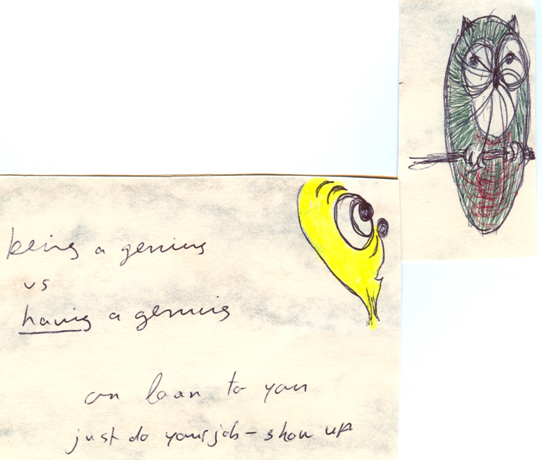 being a genius
vs
having a genius
on loan to you
just do your job - show up